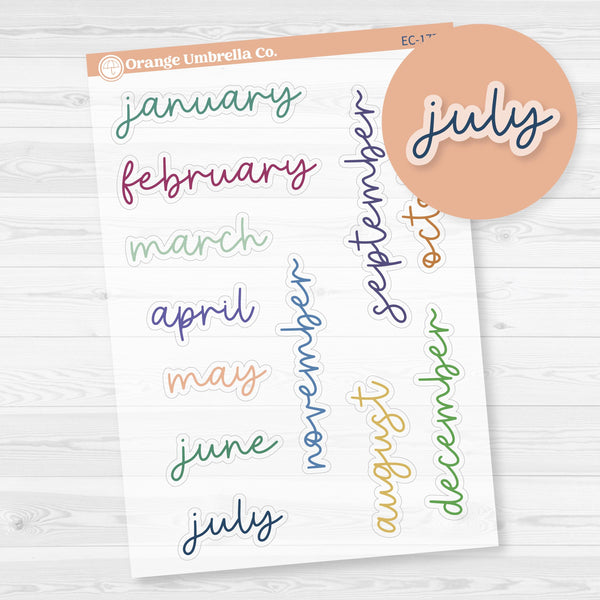 Orange Umbrella Co.
january
february
march
april
may
june
july
november
september
august
december
july